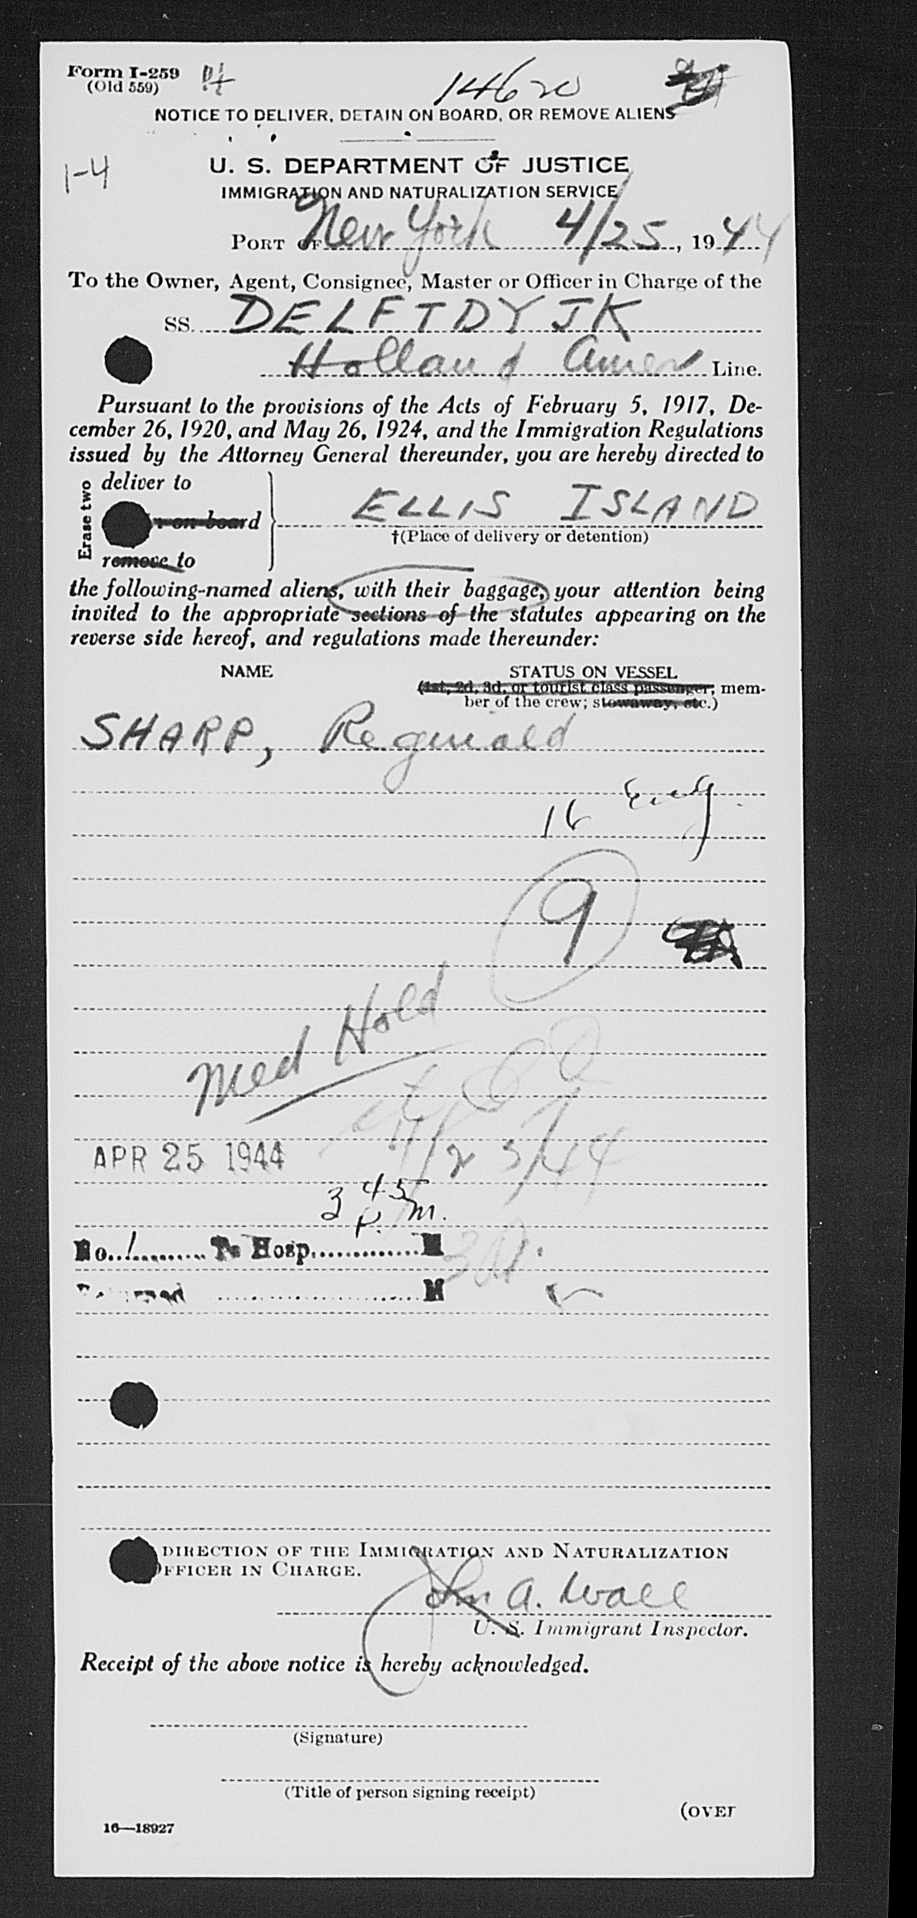 Form I-259
(Old 559)
14620
NOTICE TO DELIVER, DETAIN ON BOARD, OR REMOVE ALIENS
1-4
U. S. DEPARTMENT OF JUSTICE
IMMIGRATION AND NATURALIZATION SERVICE
PORT OF New York 4/25, 1944
To the Owner, Agent, Consignee, Master or Officer in Charge of the
SS. DELFTDYJK
Holland Amer Line.
Pursuant to the provisions of the Acts of February 5, 1917, De-
cember 26, 1920, and May 26, 1924, and the Immigration Regulations
issued by the Attorney General thereunder, you are hereby directed to
Erase two
deliver to
on board
ELLIS ISLAND
†(Place of delivery or detention)
remove to
the following-named aliens, with their baggage, your attention being
invited to the appropriate sections of the statutes appearing on the
reverse side hereof, and regulations made thereunder:
NAME STATUS ON VESSEL
(1st, 2d, 3d, or tourist class passenger; mem-
ber of the crew; stowaway, etc.)
SHARP, Reginald
16 Eng
9
Med Hold
4/25/44
APR 25 1944
3 45
P. M.
No. 1 To Hosp. M
M
DIRECTION OF THE IMMIGRATION AND NATURALIZATION
OFFICER IN CHARGE.
John A. Wall
U. S. Immigrant Inspector.
Receipt of the above notice is hereby acknowledged.
(Signature)
(Title of person signing receipt)
(OVER
16—18927